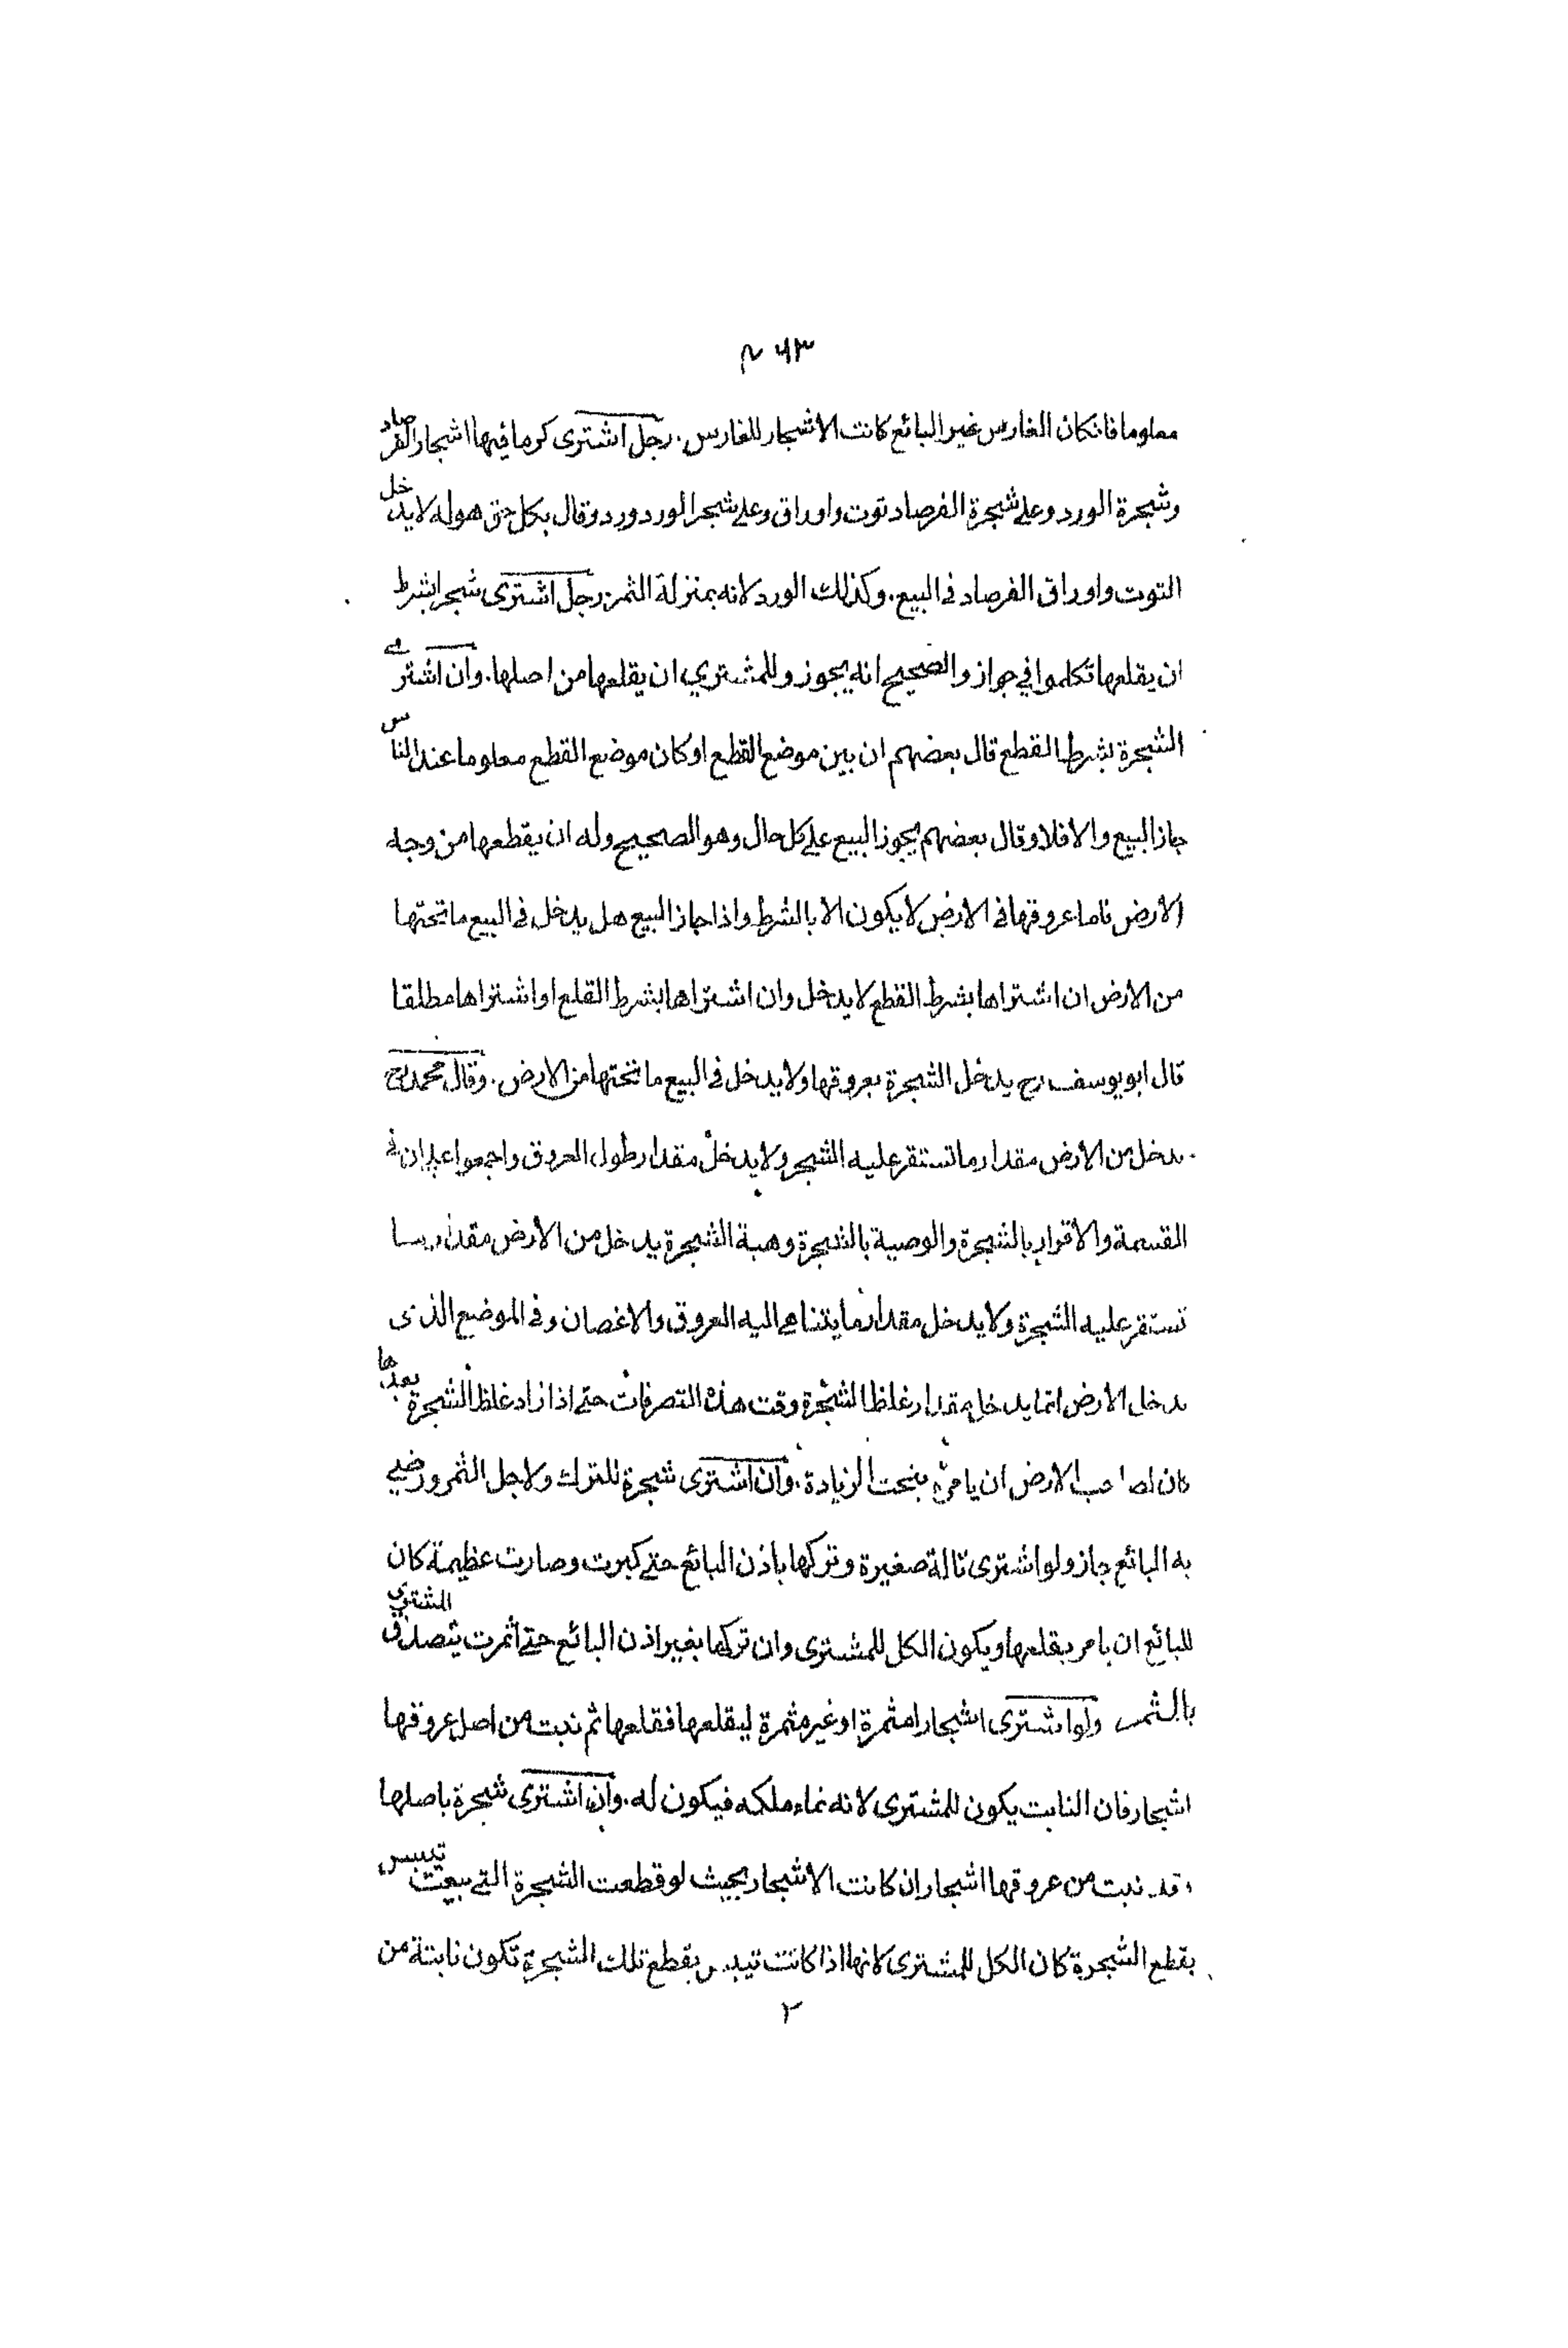 معلوما فان كان الغارس غير البائع كانت الاشجار للغارس. رجل اشترى كرما فيها اشجار الفرصاد
وشجرة الورد وعلى شجرة الفرصاد توت واوراق وعلى شجر الورد ورد وقال بكل حق هو له لا يدخل
التوت واوراق الفرصاد فى البيع. وكذلك الورد لانه بمنزلة الثمن رجل اشترى شجرا بشرط
ان يقلعها تكلموا في جواز والصحيح انه يجوز وللمشتري ان يقلعها من اصلها. وان اشترى
الشجرة بشرط القطع قال بعضهم ان بين موضع القطع او كان موضع القطع معلوما عند الناس
جاز البيع والا فلا وقال بعضهم يجوز البيع على كل حال وهو الصحيح وله ان يقطعها من وجه
الارض فاما عروقها فى الارض لا يكون الا بالشرط واذا جاز البيع هل يدخل فى البيع ما تحتها
من الارض ان اشتراها بشرط القطع لا يدخل وان اشتراها بشرط القلع او اشتراها مطلقا
قال ابو يوسف رح يدخل الشجرة بعروقها ولا يدخل فى البيع ما تحتها من الارض. وقال محمد رح
يدخل من الارض مقدار ما تستقر عليه الشجر ولا يدخل مقدار طول العروق واجمعوا على ان فى
القسمة والاقرار بالشجرة والوصية بالشجرة وهبة الشجرة يدخل من الارض مقدار ما
تستقر عليه الشجرة ولا يدخل مقدار ما يتناهى اليه العروق والاغصان وفى الموضع الذى
يدخل الارض انما يدخل مقدار غلظ الشجرة وقت هذه التصرفات حتى اذا زاد غلظ الشجرة بعدها
كان لصاحب الارض ان يامره بنحت الزيادة. وان اشترى شجرة للترك ولاجل الثمر ورضي
به البائع جاز ولو اشترى تالة صغيرة وتركها باذن البائع حتى كبرت وصارت عظيمة كان
للبائع ان يامر بقلعها ويكون الكل للمشترى وان تركها بغير اذن البائع حتى أثمرت يتصدق المشتري
بالثمر ولو اشترى اشجارا مثمرة او غير مثمرة ليقلعها فقلعها ثم نبت من اصل عروقها
اشجار فان النابت يكون للمشترى لانه نماء ملكه فيكون له. وان اشترى شجرة باصلها
وقد نبت من عروقها اشجار ان كانت الاشجار بحيث لو قطعت الشجرة التى بيعت تيبس
بقطع الشجرة كان الكل للمشترى لانها اذا كانت تيبس بقطع تلك الشجرة تكون نابتة من
٢